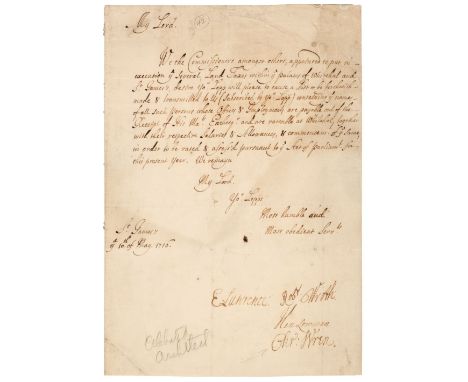 My Lord.
We the Commissioners amongst others, appointed to put in
execution ye Several Land Taxes within ye palaces of Whitehal and
St James's, desire Yor Lopp will please to cause a List to be forthwith
made & transmitted to Us (Subscribed by Yor Lopp) containing ye names
of all such Persons whose Offices & Employments are payable out of the
Receipt of His Maties and are rateable at Whitehal, together
with their respective Salaries & Allowances, & commencemt of ye same
in order to be rated & assess'd pursuant to ye Act of Parliamt for
this present Year. We remain
My Lord.
Yor Lopps
Most humble and
Most obedient Servts
St James's
ye 16th of May. 1716.
E Lawrence Robt
Hen
Chr. Wren.
Celebrated
Architect